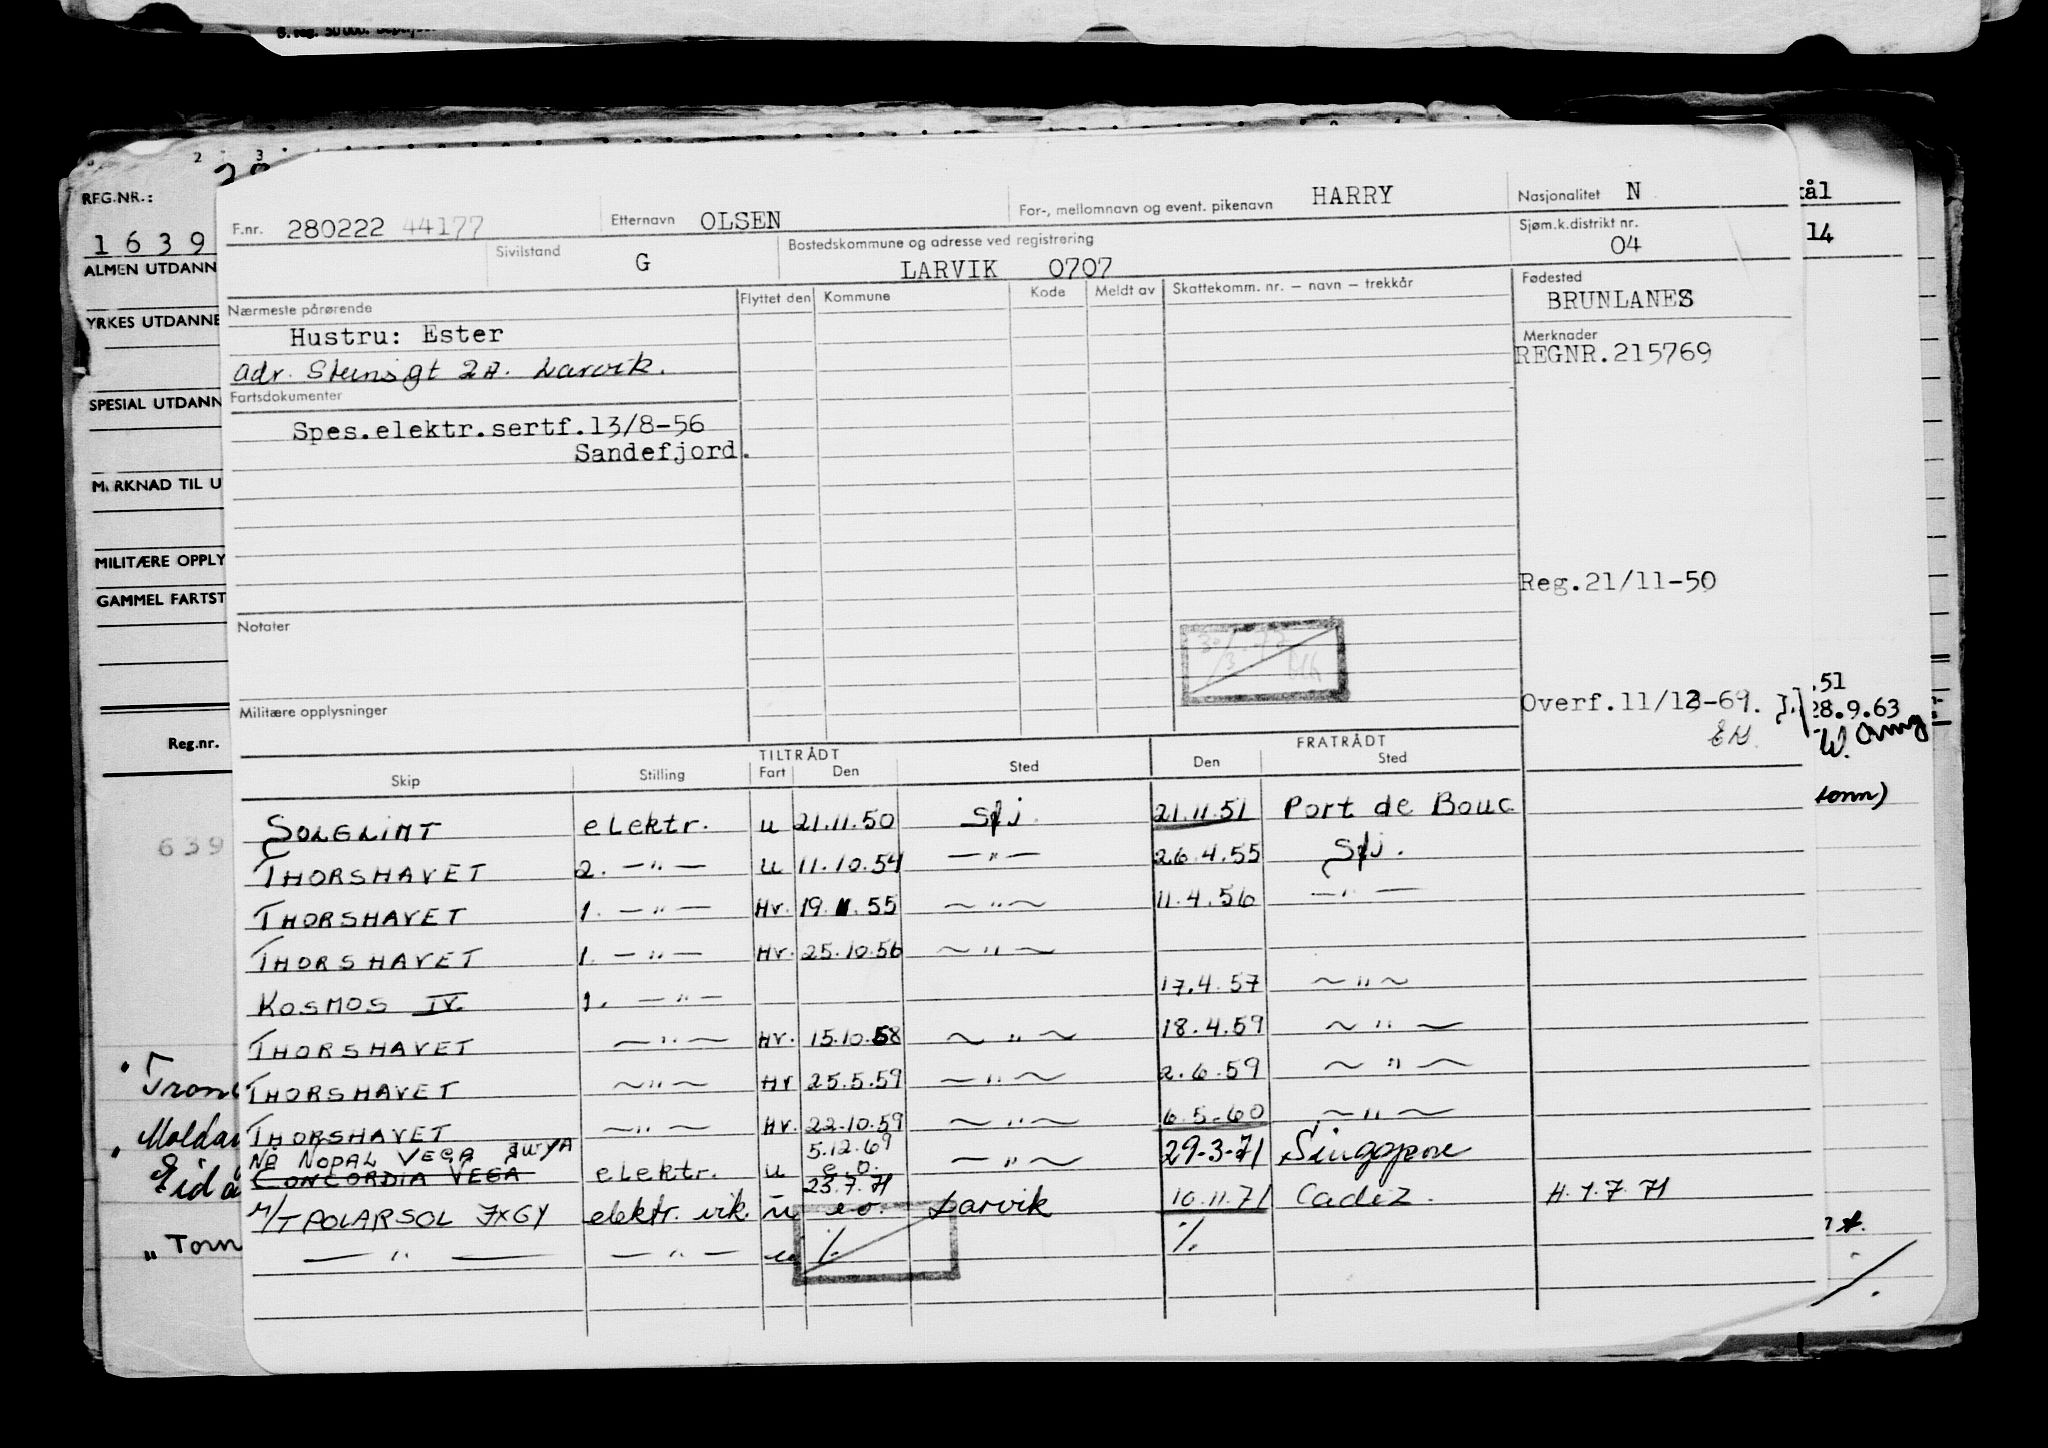 S. reg. 50000.
2 3
REG.NR.:
1 6 3 9
ALMEN UTDANN
YRKES UTDANNE
SPESIAL UTDANN
MERKNAD TIL U
MILITÆRE OPPLY
GAMMEL FARTST
Reg.nr.
639
kål
14
F.nr. 280222 44177 Etternavn OLSEN For-, mellomnavn og event. pikenavn HARRY Nasjonalitet N
Sivilstand G Bostedskommune og adresse ved registrering LARVIK 0707 Sjøm.k.distrikt nr. 04
Nærmeste pårørende Flyttet den Kommune Kode Meldt av Skattekomm. nr. – navn – trekkår Fødested
BRUNLANES
Hustru: Ester
Merknader
REGNR.215769
Adr. Steinsgt 2A. Larvik.
Fartsdokumenter
Spes.elektr.sertf.13/8-56
Sandefjord.
Reg.21/11-50
Notater
Overf.11/12-69.
Militære opplysninger
.51
28.9.63
TILTRÅDT FRATRÅDT
Skip Stilling Fart Den Sted Den Sted
SOLGLIMT elektr. u 21.11.50 Sfj. 21.11.51 Port de Bouc
THORSHAVET 2. — " — u 11.10.54 — " — 26.4.55 Sfj.
THORSHAVET 1. — " — Hv. 19.11.55 ~ " ~ 11.4.56 — " —
THORSHAVET 1. — " — Hv. 25.10.56 ~ " ~
KOSMOS IV. 1. — " — 17.4.57 ~ " ~
THORSHAVET ~ " ~ Hv. 15.10.58 ~ " ~ 18.4.59 ~ " ~
THORSHAVET ~ " ~ Hv 25.5.59 — " ~ 2.6.59 ~ " ~
THORSHAVET ~ " ~ Hv. 22.10.59 ~ " ~ 6.5-60 ~ " ~
Nå NOPAL VEGA JWYA 5.12.69
CONCORDIA VEGA elektr. u e.o. — " ~ 29-3-71 Singapore
23.7.71
M/T POLARSOL JXGY elektr. vik. u e o. Larvik 10.11.71 Cadiz. H. 1.7.71
— " — — " — %. %.
tonn)